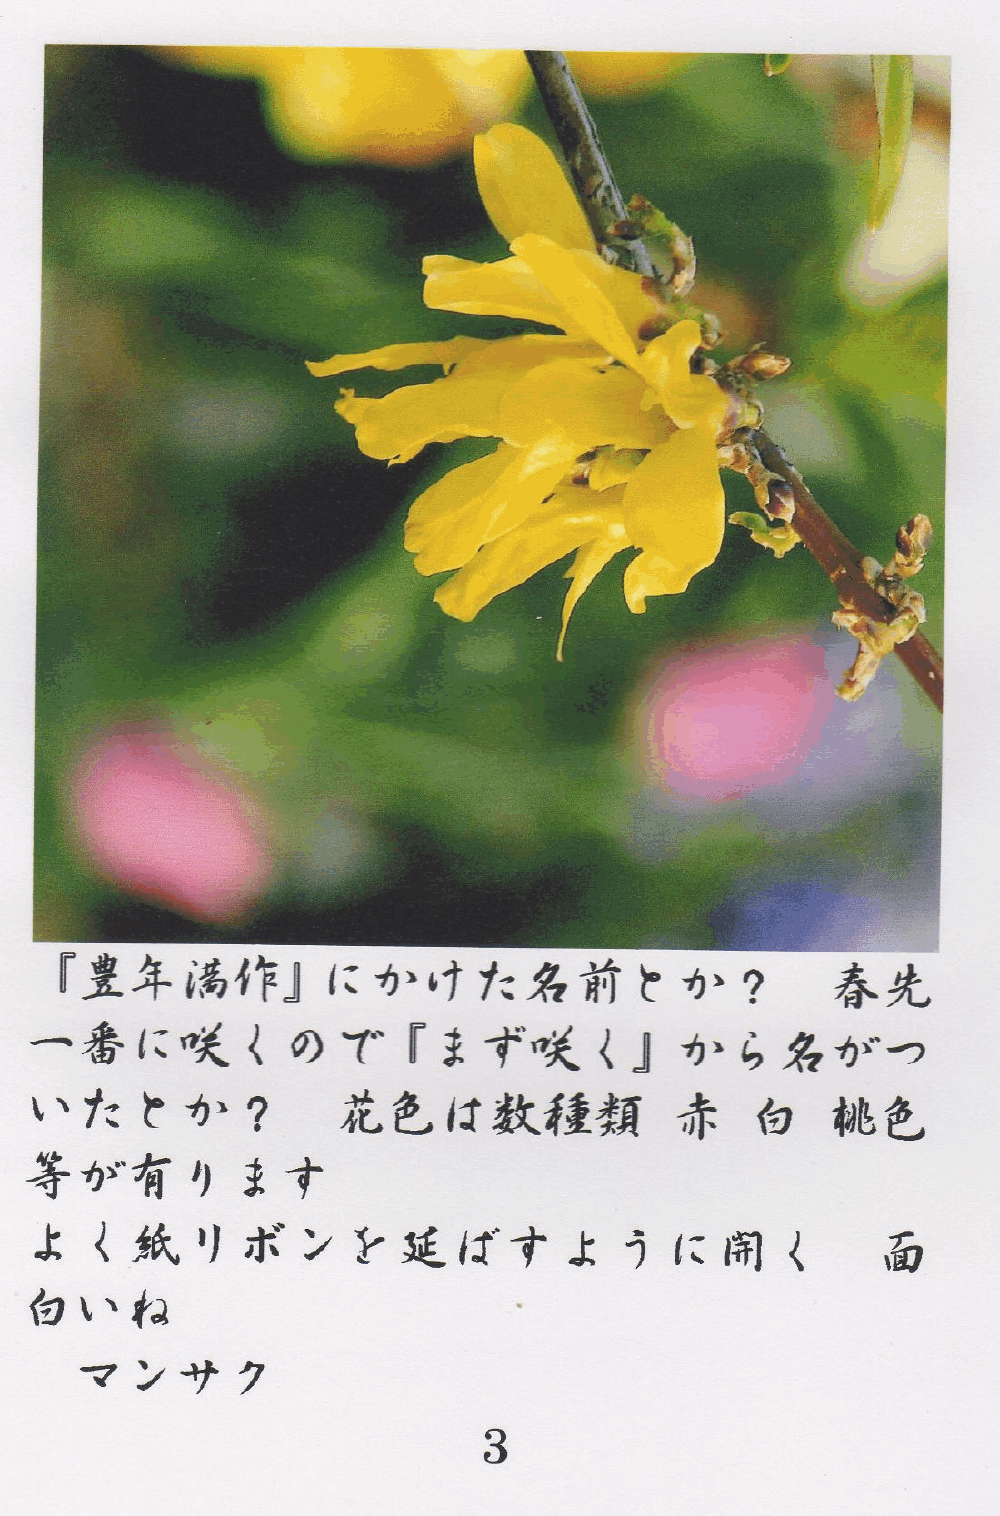 『豊年満作』にかけた名前とか？　春先
一番に咲くので『まず咲く』から名がつ
いたとか？　花色は数種類　赤　白　桃色
等が有ります
よく紙リボンを延ばすように開く　面
白いね
　マンサク
3